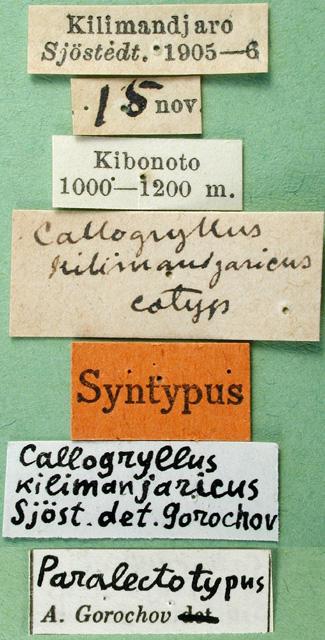 Kilimandjaro
Sjöstedt. 1905–6
15 nov.
Kibonoto
1000–1200 m.
Callogryllus
kilimandjaricus
cotyp
Syntypus
Callogryllus
kilimanjaricus
Sjöst. det. Gorochov
Paralectotypus
A. Gorochov det.